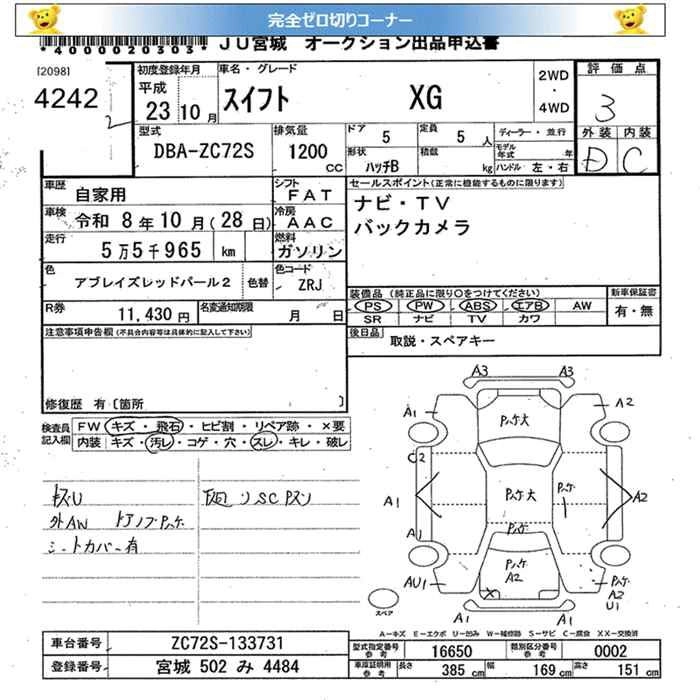 完全ゼロ切りコーナー
*4000020303* JU宮城 オークション出品申込書
[2098]
4242
2
初度登録年月 車名・グレード 2WD・4WD 評価点
平成 23 10月 スイフト XG 3
型式 排気量 ドア 5 定員 5 人 ディーラー・並行 外装 内装
DBA-ZC72S 1200 CC 形状 ハッチB 積載 kg モデル年式 年 ハンドル 左・右 D C
車歴 自家用 シフト FAT セールスポイント(正常に機能するものに限ります)
車検 令和 8年10月(28日) 冷房 AAC ナビ・TV
走行 5万5千965 km 燃料 ガソリン バックカメラ
色 アブレイズレッドパール2 色替 色コード ZRJ
装備品 (純正品に限り○をつけてください) 新車保証書
PS PW ABS エアB AW 有・無
SR ナビ TV カワ
R券 11,430円 名変通知期限 月 日
後日品 取説・スペアキー
注意事項申告欄(不具合内容等は具体的に記入して下さい)
修復歴 有 [箇所 ]
検査員記入欄 FW キズ・飛石・ヒビ割・リペア跡・×要
内装 キズ・汚レ・コゲ・穴・スレ・キレ・破レ
キズU
外AW ドアノブPッケ
シートカバー有
下廻りSCPスリ
A3 A3
A1 Pッケ大 A2
C2
A1 Pッケ大 Pッケ A2
A1 Pッケ
AU1 Pッケ A2 Pッケ A2 U1
X
A1 A1
スペア
A-キズ E-エクボ U-凹み W-補修跡 S-サビ C-腐食 XX-交換済
車台番号 ZC72S-133731
登録番号 宮城 502 み 4484
型式指定番号 参考 16650 類別区分番号 参考 0002
車庫証明用 参考 長さ 385 cm 幅 169 cm 高さ 151 cm